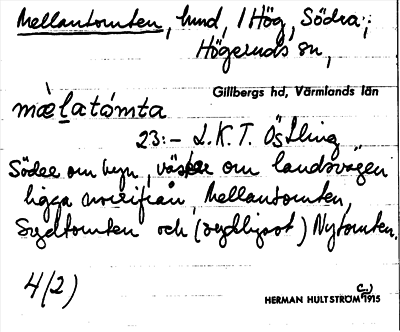 Mellantomten, lund, 1 Hög, Södra;
Högeruds sn,
Gillbergs hd, Värmlands län
mæ̀l̲atómta
23:– L.K.T. Östling
Söder om byn, väster om landsvägen
ligga norifrån, Mellantomten,
Sydtomten och (sydligast) Nytomten.
4/2)
HERMAN HULTSTRÖM C:) 1915